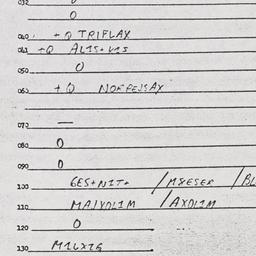 032 0
0
040 + Q TRIFLAX
041 + Q ALIS+VIS
050 0
060 + Q NOFFENSAX
072 —
080 0
090 0
100 GES+NIT+ / M&ESER / BL
110 MA/VOLIM / AXOLIM
120 0
130 MILXIG